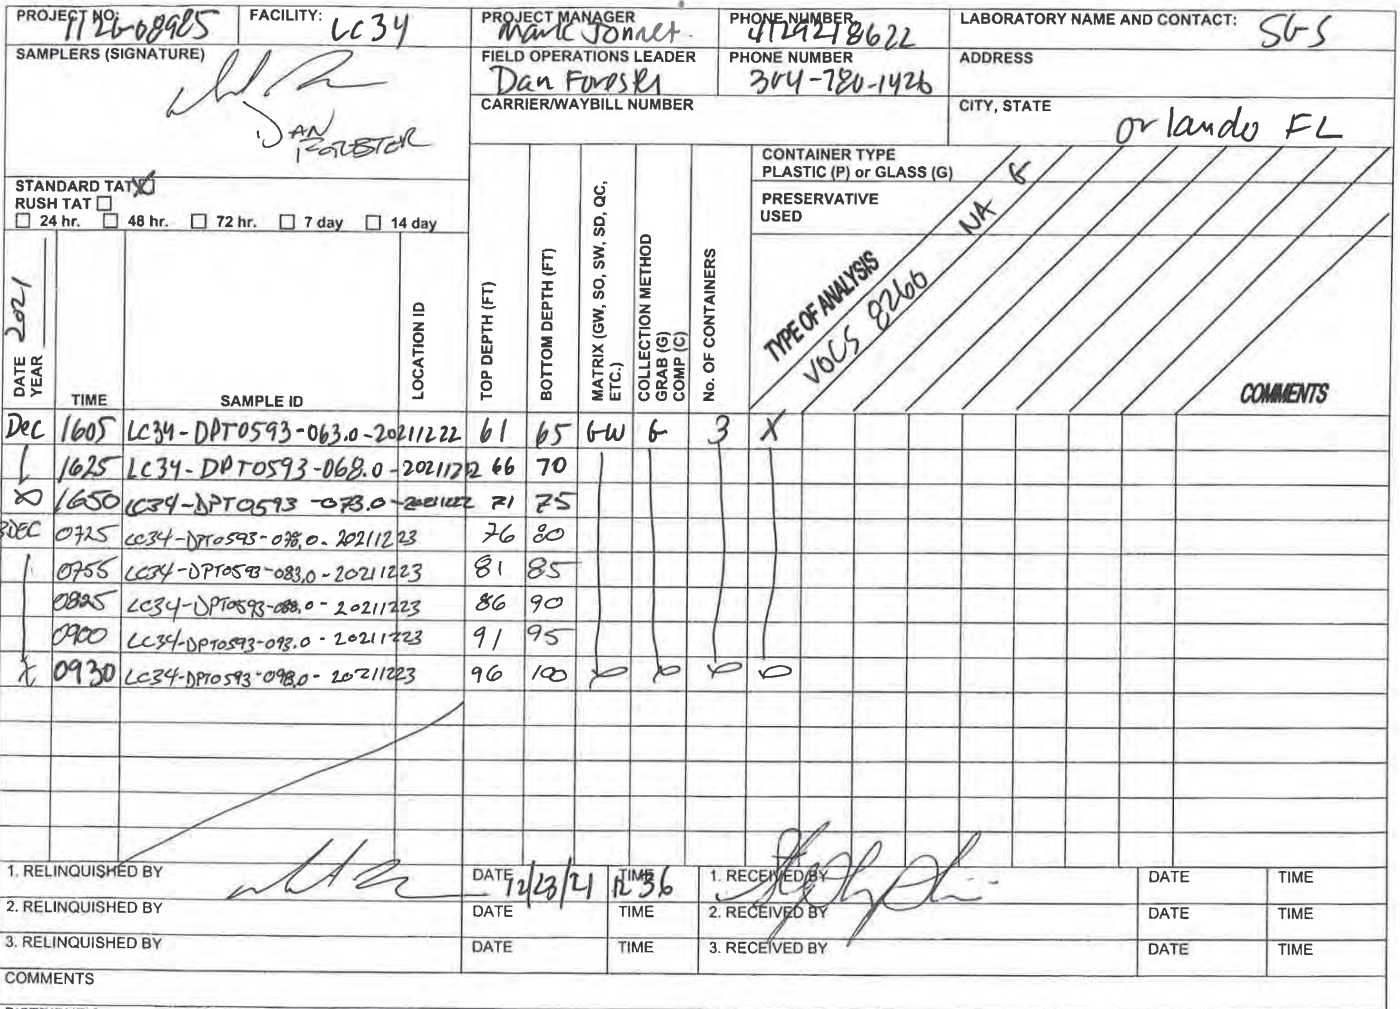 PROJECT NO: 112G08985 FACILITY: LC34 PROJECT MANAGER Mark Jonnet PHONE NUMBER 4129218622 LABORATORY NAME AND CONTACT: SGS
SAMPLERS (SIGNATURE) FIELD OPERATIONS LEADER Dan Forester PHONE NUMBER 304-780-1426 ADDRESS
DAN FORESTER
CARRIER/WAYBILL NUMBER CITY, STATE Orlando FL
STANDARD TAT X
RUSH TAT
24 hr. 48 hr. 72 hr. 7 day 14 day
CONTAINER TYPE
PLASTIC (P) or GLASS (G) G
PRESERVATIVE
USED NA
TYPE OF ANALYSIS
VOCS 8260
DATE YEAR 2021 TIME SAMPLE ID LOCATION ID TOP DEPTH (FT) BOTTOM DEPTH (FT) MATRIX (GW, SO, SW, SD, QC, ETC.) COLLECTION METHOD GRAB (G) COMP (C) No. OF CONTAINERS COMMENTS
Dec 1605 LC34-DPT0593-063.0-20211222 61 65 GW G 3 X
1625 LC34-DPT0593-068.0-20211222 66 70
1650 LC34-DPT0593-073.0-20211222 71 75
3DEC 0725 LC34-DPT0593-078.0-20211223 76 80
0755 LC34-DPT0593-083.0-20211223 81 85
0825 LC34-DPT0593-088.0-20211223 86 90
0900 LC34-DPT0593-093.0-20211223 91 95
0930 LC34-DPT0593-098.0-20211223 96 100
1. RELINQUISHED BY DATE 12/23/21 TIME 1236 1. RECEIVED BY DATE TIME
2. RELINQUISHED BY DATE TIME 2. RECEIVED BY DATE TIME
3. RELINQUISHED BY DATE TIME 3. RECEIVED BY DATE TIME
COMMENTS